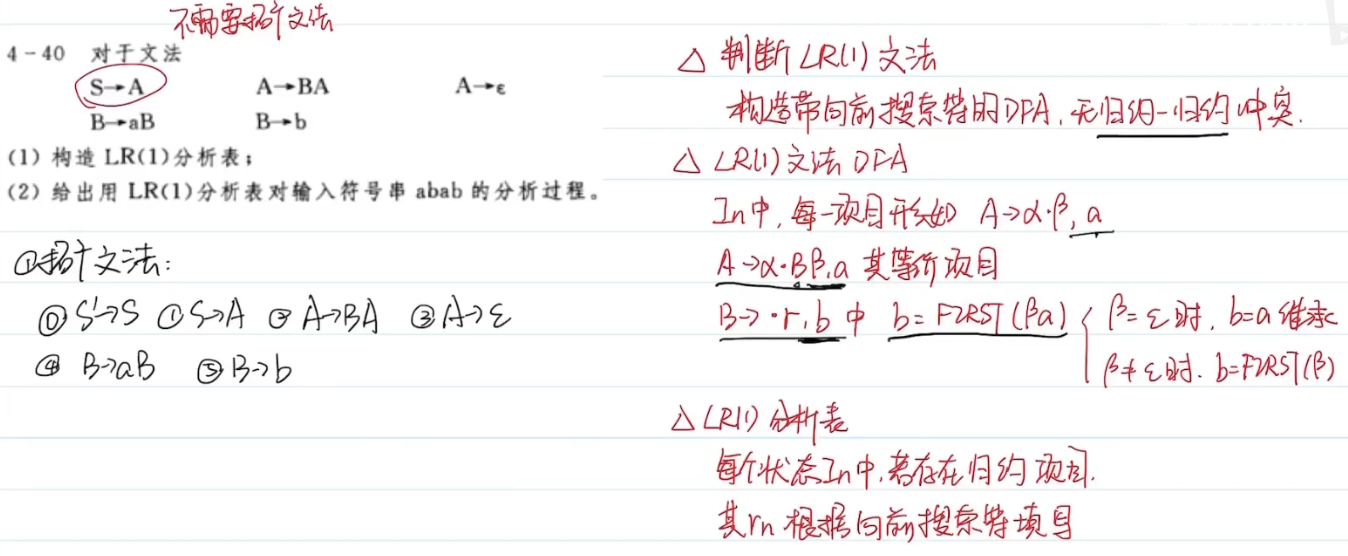 不需要拓广文法
4-40 对于文法
S→A A→BA A→ε
B→aB B→b
(1) 构造 LR(1)分析表；
(2) 给出用 LR(1)分析表对输入符号串 abab 的分析过程。
①拓广文法：
⓪ S'→S ① S→A ② A→BA ③ A→ε
④ B→aB ⑤ B→b
△ 判断 LR(1) 文法
构造带向前搜索符的DFA，无归约-归约冲突.
△ LR(1)文法 DFA
In中，每一项目形如 A→α·β, a
A→α·Bβ,a 其等价项目
B→·r,b 中 b=FIRST(βa) { β=ε时, b=a 继承
β≠ε时. b=FIRST(β)
△ LR(1) 分析表
每个状态In中，若存在归约项目.
其rn 根据向前搜索符填写